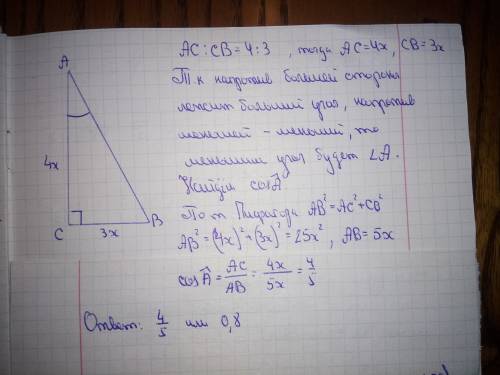 AC : CB = 4 : 3 , тогда AC = 4x, CB = 3x
Т.к напротив большей стороны
лежит больший угол, напротив
меньшей - меньший, то
меньшим углом будет ∠A.
Найдём cos Â
По т Пифагора AB² = AC² + CB²
AB² = (4x)² + (3x)² = 25x² , AB = 5x
cos Â = AC/AB = 4x/5x = 4/5
Ответ: 4/5 или 0,8
A
4x
C
3x
B